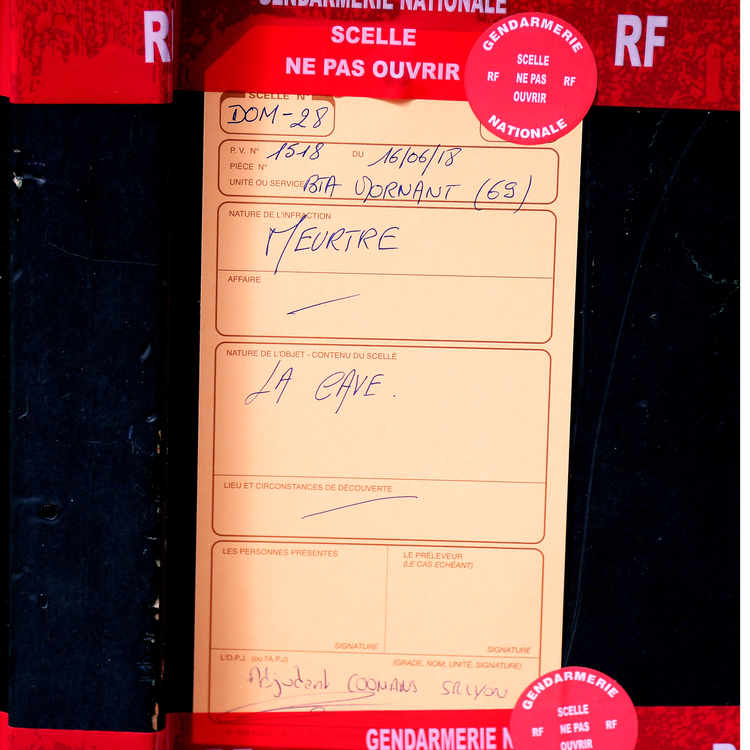 GENDARMERIE NATIONALE
SCELLE
NE PAS OUVRIR
RF
GENDARMERIE
SCELLE
RF NE PAS RF
OUVRIR
NATIONALE
SCELLE N°
DOM-28
P.V. N° 1518 DU 16/06/18
PIÈCE N°
UNITÉ OU SERVICE BTA MORNANT (69)
NATURE DE L'INFRACTION
MEURTRE
AFFAIRE
NATURE DE L'OBJET - CONTENU DU SCELLÉ
LA CAVE.
LIEU ET CIRCONSTANCES DE DÉCOUVERTE
LES PERSONNES PRÉSENTES
LE PRÉLEVEUR
(LE CAS ECHÉANT)
SIGNATURE
SIGNATURE
L'O.P.J. (ou l'A.P.J)
(GRADE, NOM, UNITÉ, SIGNATURE)
Adjudant COOMANS SR LYON
GENDARMERIE N
GENDARMERIE
SCELLE
RF NE PAS RF
OUVRIR